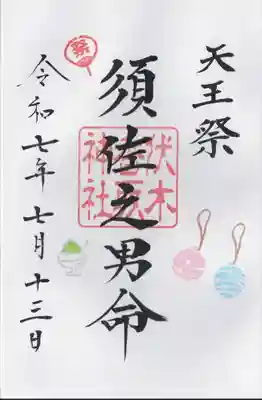 天王祭
須佐之男命
伏木
神社
祭
令和七年七月十三日